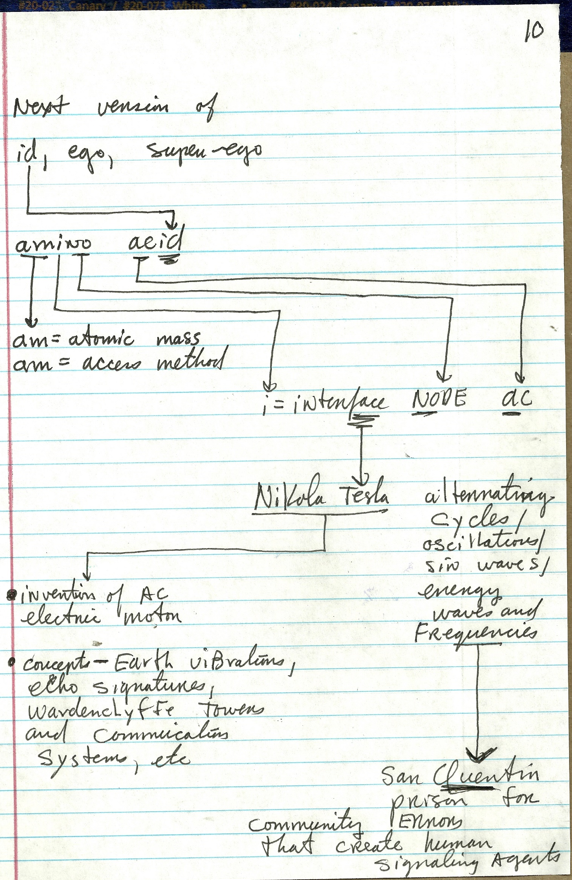 #20-021 Canary / #20-073 White
10
Next version of
id, ego, super-ego
amino acid
am = atomic mass
am = access method
i = interface NODE dC
Nikola Tesla
alternating
cycles/
oscillations/
sin waves/
energy
waves and
Frequencies
• invention of AC
electric motor
• concepts - Earth vibrations,
echo signatures,
Wardenclyffe Towers
and Commucation
Systems, etc
San Quentin
prison for
Community Errors
that create human
signaling Agents